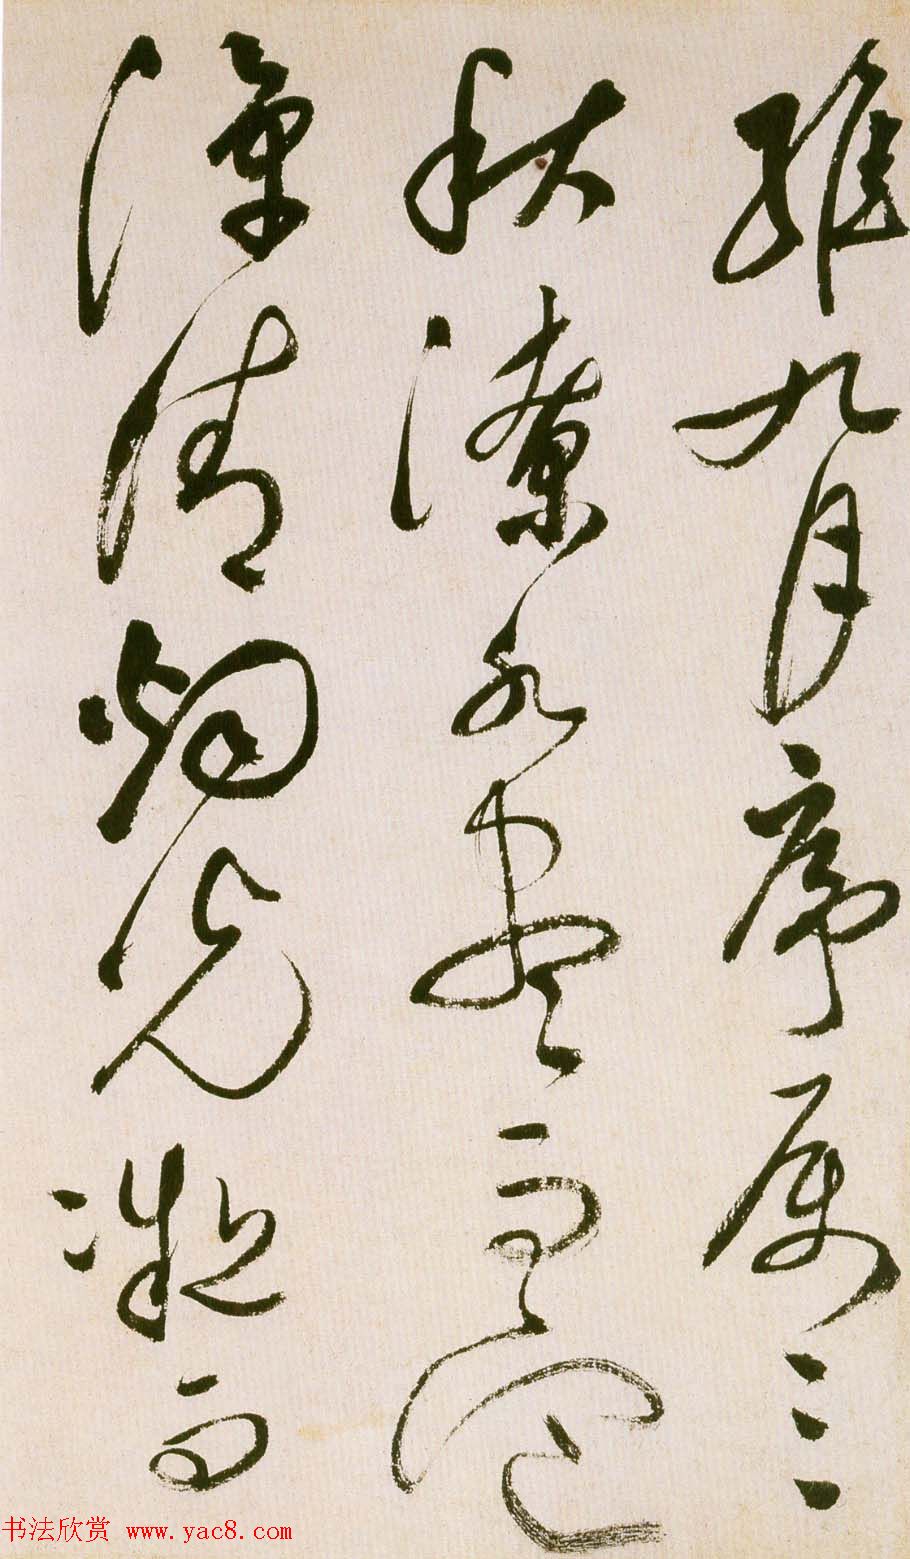 維九月序属三
秋潦水盡而寒
潭清烟光凝而
书法欣赏 www.yac8.com